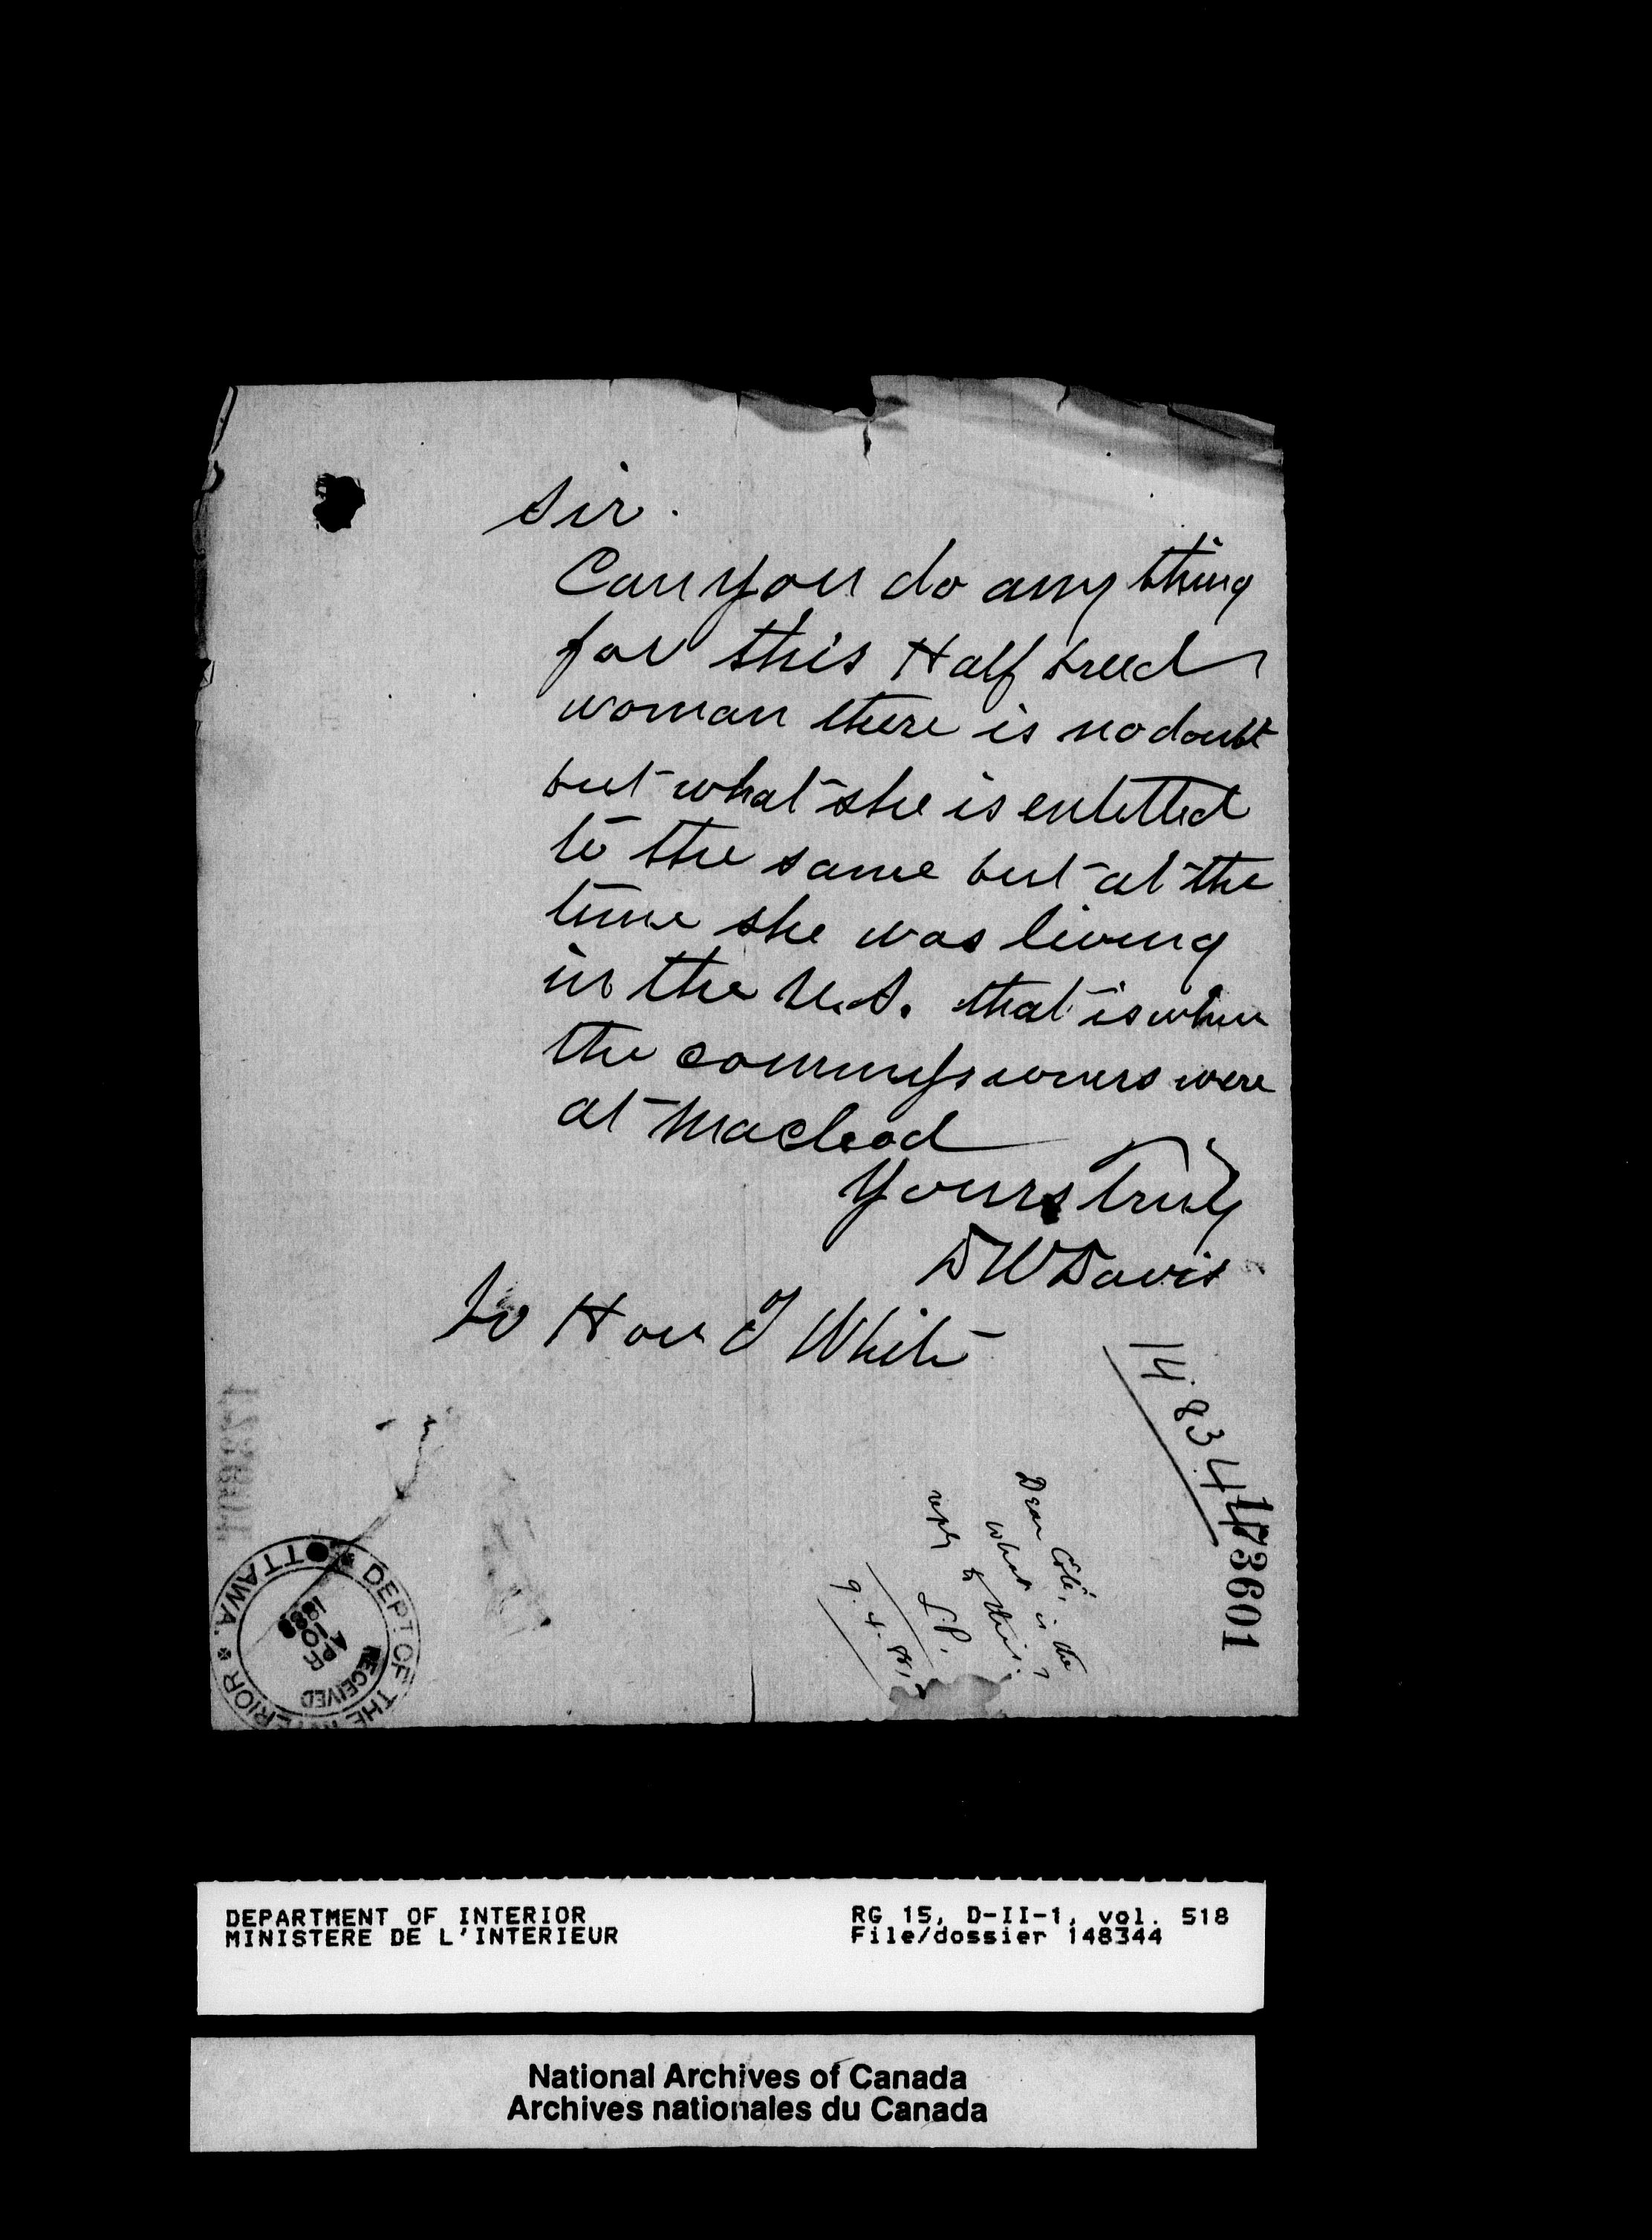 Sir.
Can you do any thing
for this Half breed
woman there is no doubt
but what she is entitled
to the same but at the
time she was living
in the U.S. that is when
the commissioners were
at Macleod
Yours truly
D W Davis
To Hon T White
148344
173601
Dear Coté,
what is the
reply to this?
L.P.
9.4.88
173601
DEPT. OF THE INTERIOR OTTAWA.
RECEIVED
AP 10
1888
DEPARTMENT OF INTERIOR
MINISTERE DE L'INTERIEUR
RG 15, D-II-1, vol. 518
File/dossier 148344
National Archives of Canada
Archives nationales du Canada